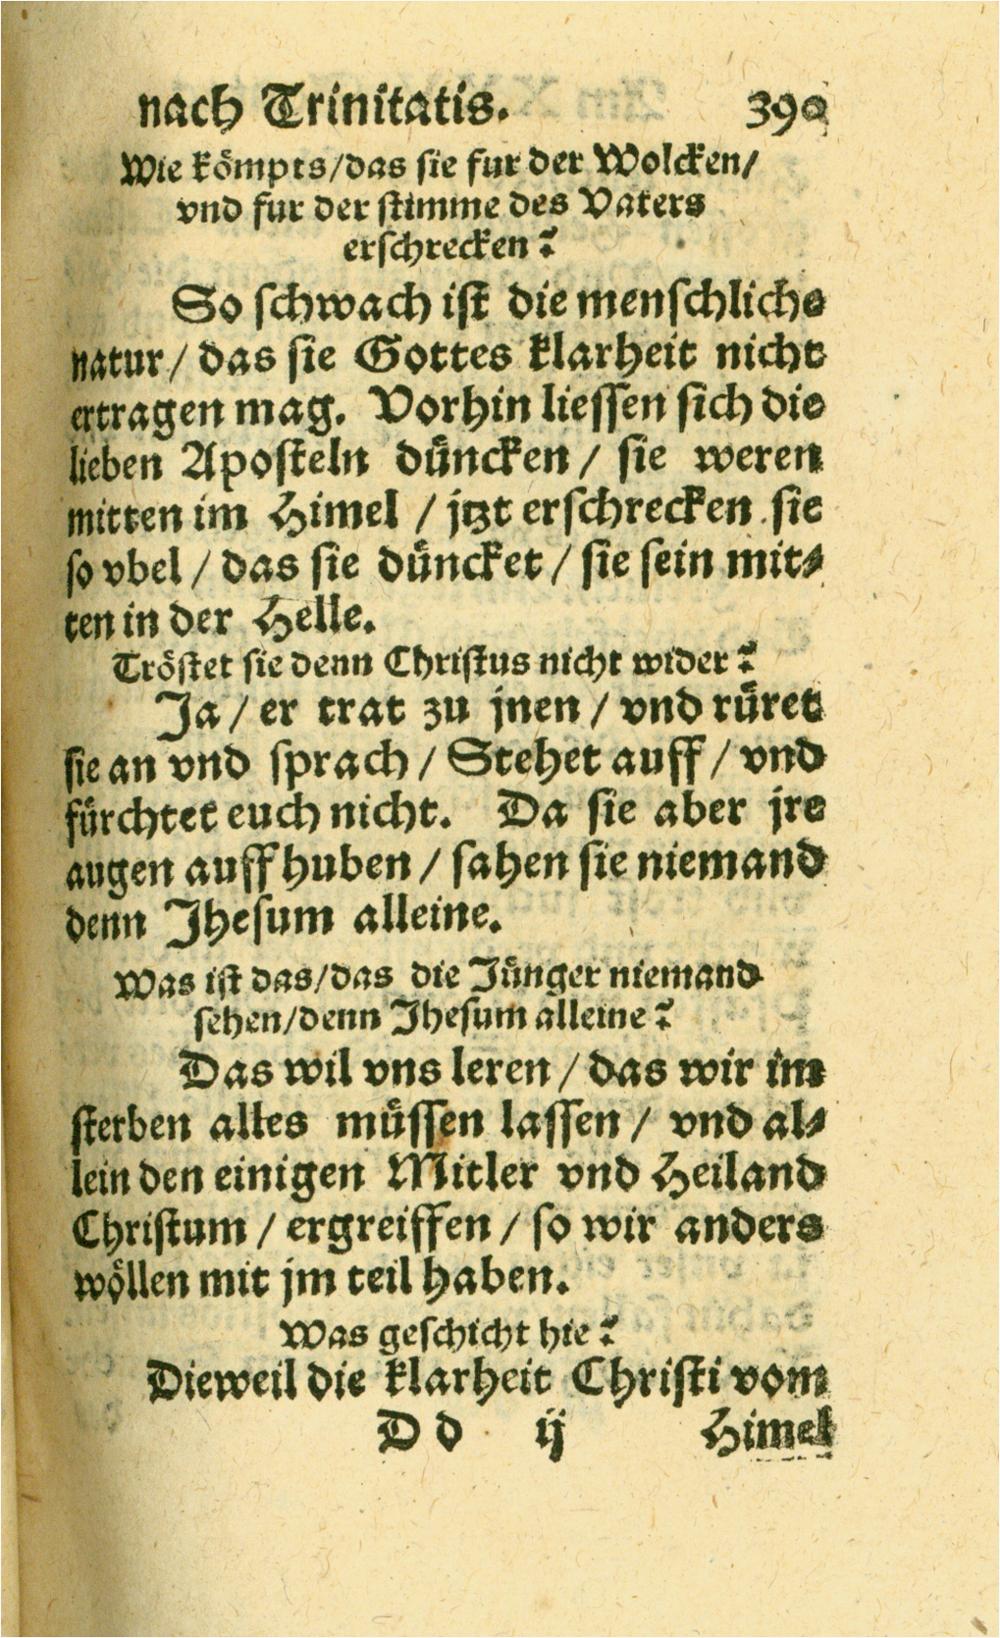 nach Trinitatis. 390
Wie kömpts/das sie fur der Wolcken/
vnd fur der stimme des Vaters
erschrecken?
So schwach ist die menschliche
natur / das sie Gottes klarheit nicht
ertragen mag. Vorhin liessen sich die
lieben Aposteln düncken / sie weren
mitten im Himel / jtzt erschrecken sie
so vbel / das sie düncket / sie sein mit-
ten in der Helle.
Tröstet sie denn Christus nicht wider?
Ja / er trat zu jnen / vnd rüret
sie an vnd sprach / Stehet auff / vnd
fürchtet euch nicht. Da sie aber jre
augen auffhuben / sahen sie niemand
denn Jhesum alleine.
Was ist das/das die Jünger niemand
sehen/denn Jhesum alleine?
Das wil vns leren / das wir im
sterben alles müssen lassen / vnd al-
lein den einigen Mitler vnd Heiland
Christum / ergreiffen / so wir anders
wöllen mit jm teil haben.
Was geschicht hie?
Dieweil die klarheit Christi vom
D d ij Himel